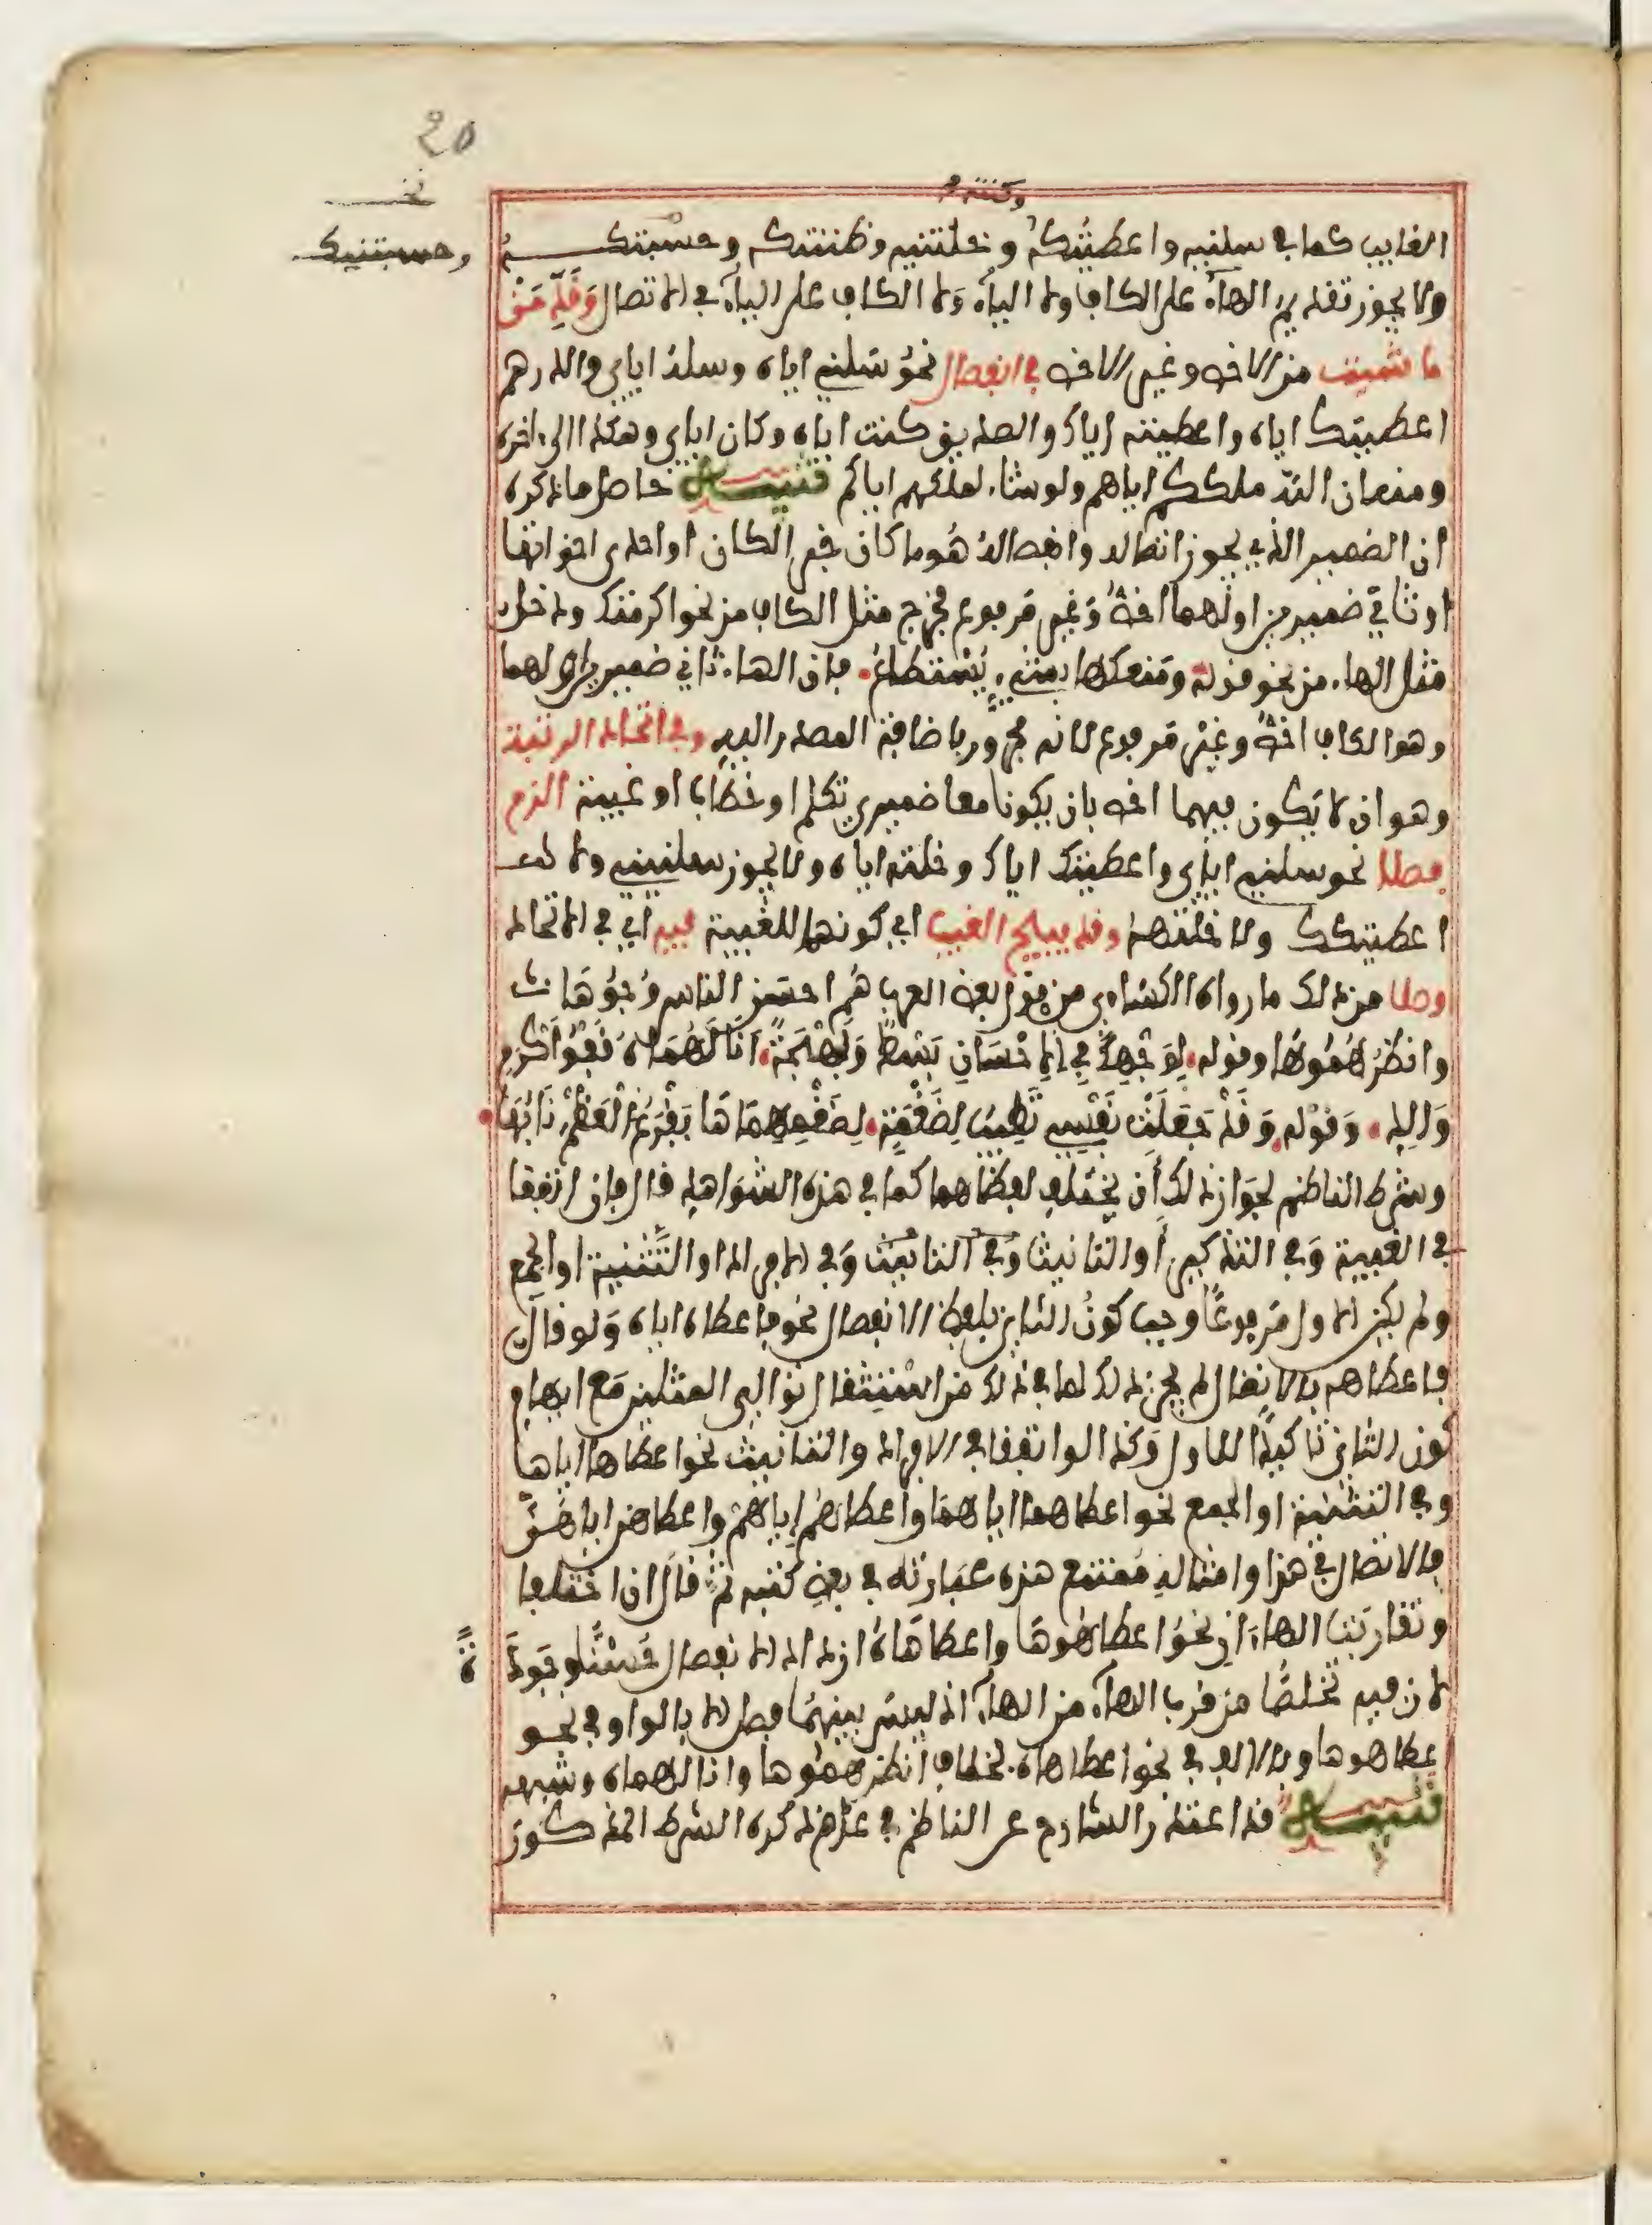 20
وكنته
نخـ
وحسبتنيك
الغايب كما في سلنيه واعطيتكه وخلتنيه وظننتكه وحسبتكـــه
ولا يجوز تقديم الهاء على الكاف ولا الياء ولا الكاف على الياء في الاتصال وقدمن
ما شئت من الاخص وغير الاخص في انفصال نحو سلني اياه وسله اياي والدرهم
اعطيتك اياه واعطيته اياك والصديق كنت اياه وكان اياي وهكذا الى اخره
ومنه ان الله ملككم اياهم ولو شاء لملكهم اياكم تنبيه حاصل ما ذكره
ان الضمير الذي يجوز اتصاله وانفصاله هو ما كان خبر الكان او احدى اخواتها
او ثاني ضميرين اولهما اخص وغير مرفوع فخرج مثل الكاف من نحو اكرمتك ودخل
مثل الهاء من نحو قوله ومنعكها بشيء يستطاع فان الهاء ثاني ضميرين اولهما
وهو الكاف اخص وغير مرفوع لانه مجرور باضافة المصدر اليه وفي اتحاد الرتبة
وهو ان لا يكون فيهما اخص بان يكونا معا ضميري تكلم او خطاب او غيبة الزم
فصلا نحو سلني اياي واعطيتك اياك وخلته اياه ولا يجوز سلنيني ولا
اعطيتكك ولا خلتهه وقد يبيح الغيب اي كونهما للغيبة فيه اي في الاتحاد
وصلا من ذلك ما رواه الكساءي من قول بعض العرب هم احسن الناس وجوها
وانظرهموها وقوله لوجهك في الاحسان بسط وبهجة انا لهماه قفو اكرم
والد وقوله وقد جعلت نفسي تطيب لضغمة لضغمهماها يقرع العظم نابها
وشرط الناظم لجواز ذلك أن يختلف لفظاهما كما في هذه الشواهد قال فان اتفقا
في الغيبة وفي التذكير أو التانيث وفي الافراد او التثنية او الجمع
ولم يكن الاول مرفوعا وجب كون الثاني بلفظ الانفصال نحو فاعطاه اياه ولو قال
فاعطاهه بالاتصال لم يجز ذلك لما في ذلك من استثقال توالي المثلين مع ايهام
كون الثاني تاكيدا للاول وكذا لو اتفقا في الافراد والتانيث نحو اعطاها اياها
وفي التثنية او الجمع نحو اعطاهما اياهما واعطاهم اياهم واعطاهن اياهن
فالاتصال في هذا وامثاله ممتنع هذه عبارته في بعض كتبه ثم قال فان اختلفا
وتقاربت الهاءان نحو اعطاهوها واعطاهاه ازداد الانفصال حسنا وجودة
لان فيه تخلصا من قرب الهاء من الهاء اذ ليس بينهما فصل الا بالواو في نحو
اعطاهوها وبالالف في نحو اعطاهاه بخلاف انظرهموها وانا لهماه وشبهه
تنبيه قد اعتذر الشارح عن الناظم في عدم ذكره الشرط المذكور